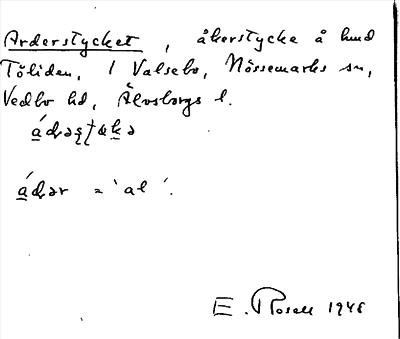 Arderstycket, åkerstycke å hmd
Töliden, 1 Valsebo, Nössemarks sn,
Vedbo hd, Älvsborgs l.
ádəṣtykə
ádər = 'al'.
E. Rosell 1946